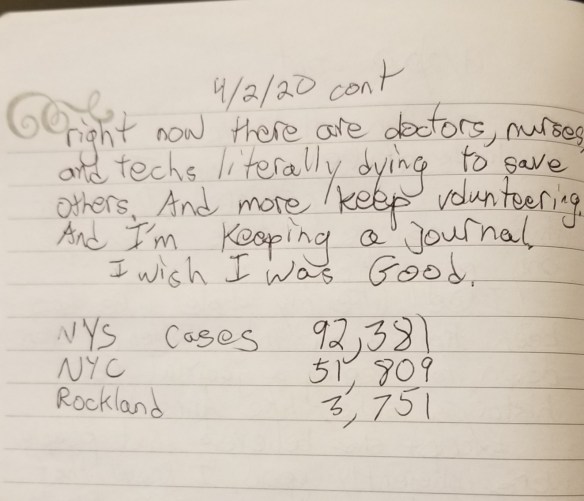 4/2/20 cont
right now there are doctors, nurses,
and techs literally dying to save
others. And more keep volunteering.
And I'm keeping a journal.
I wish I was Good.
NYS cases 92,381
NYC 51,809
Rockland 3,751